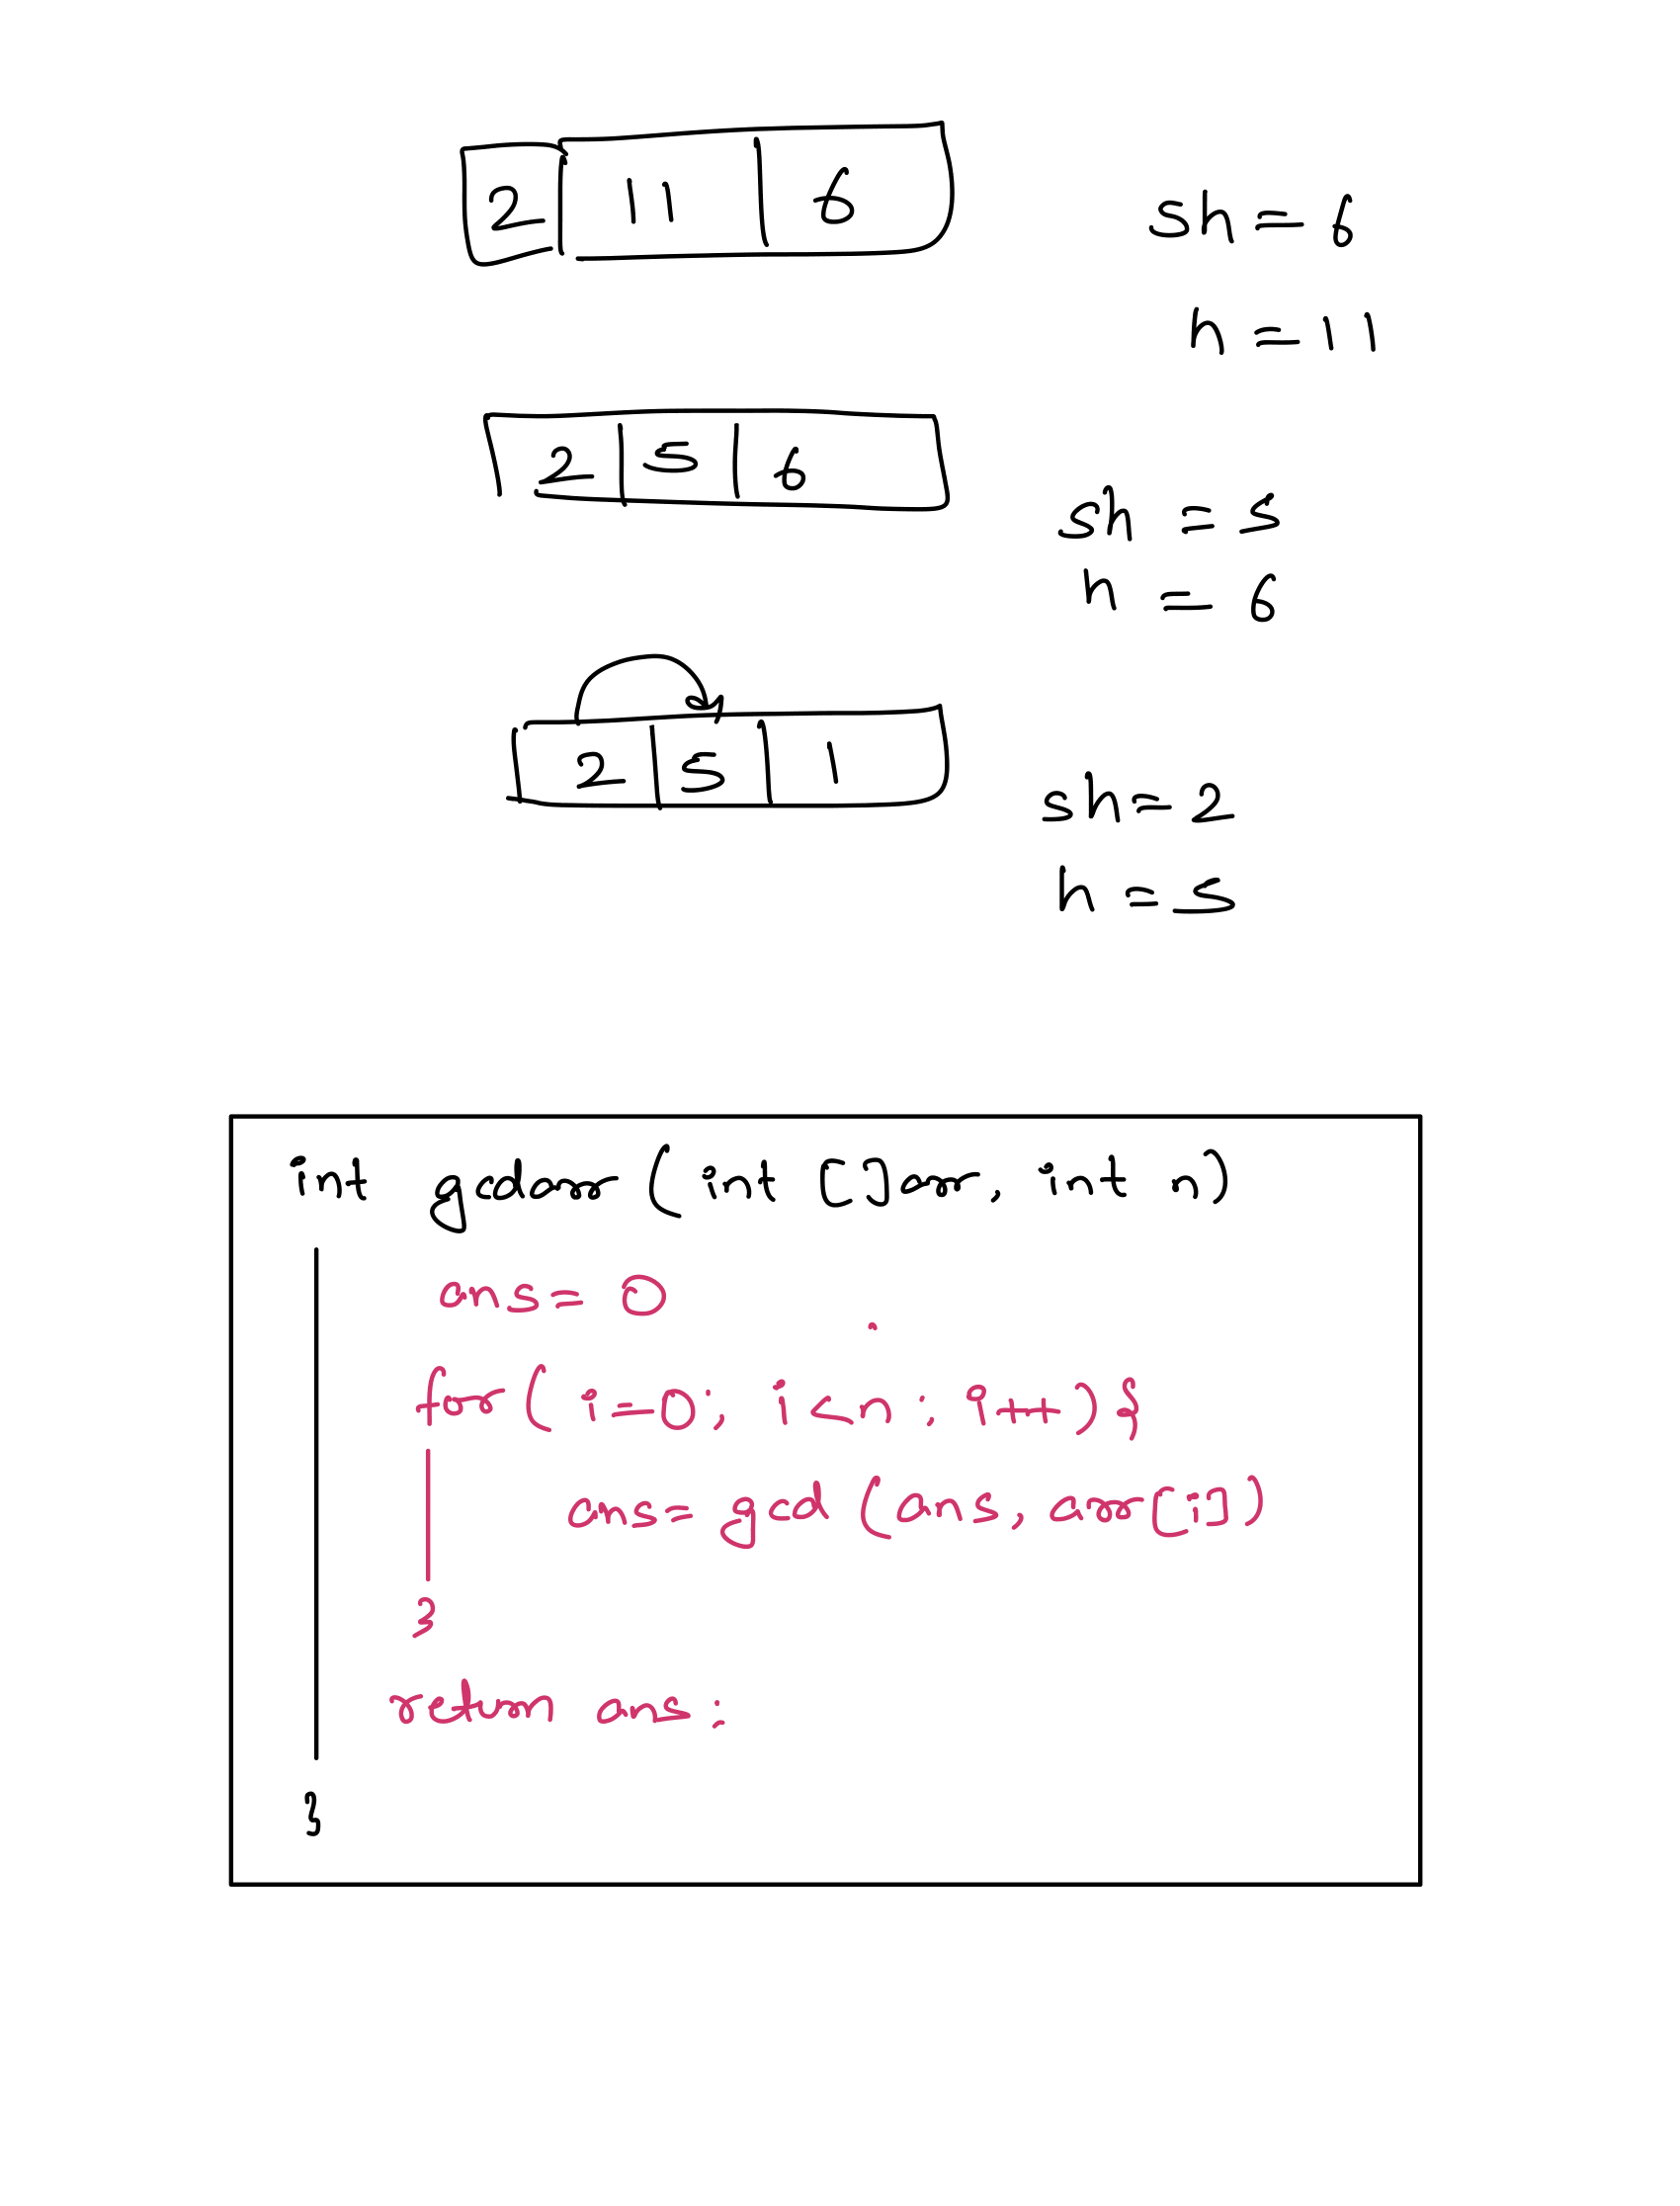 2 11 6
sh = 6
h = 11
2 5 6
sh = 5
h = 6
2 5 1
sh = 2
h = 5
int gcdarr (int []arr, int n)
ans = 0
for( i=0; i<n; i++) {
ans = gcd (ans, arr[i])
}
return ans;
}